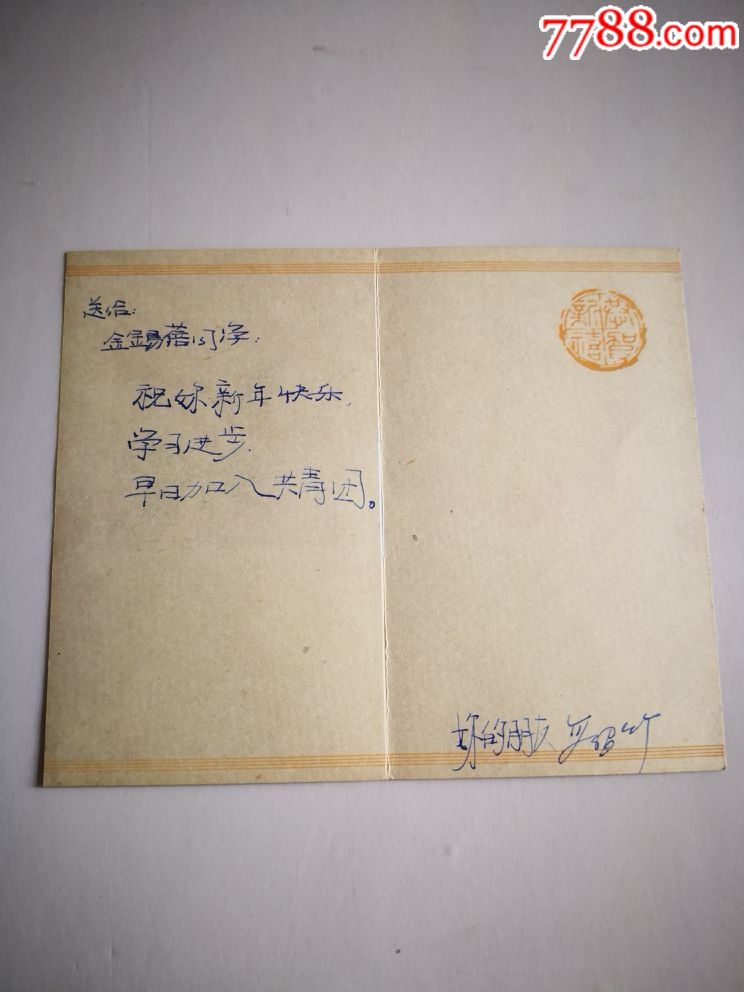 7788.com
送给:
金錫蓓同学:
祝妳新年快乐,
学习进步.
早日加入共青团。
恭賀新禧
妳的朋友